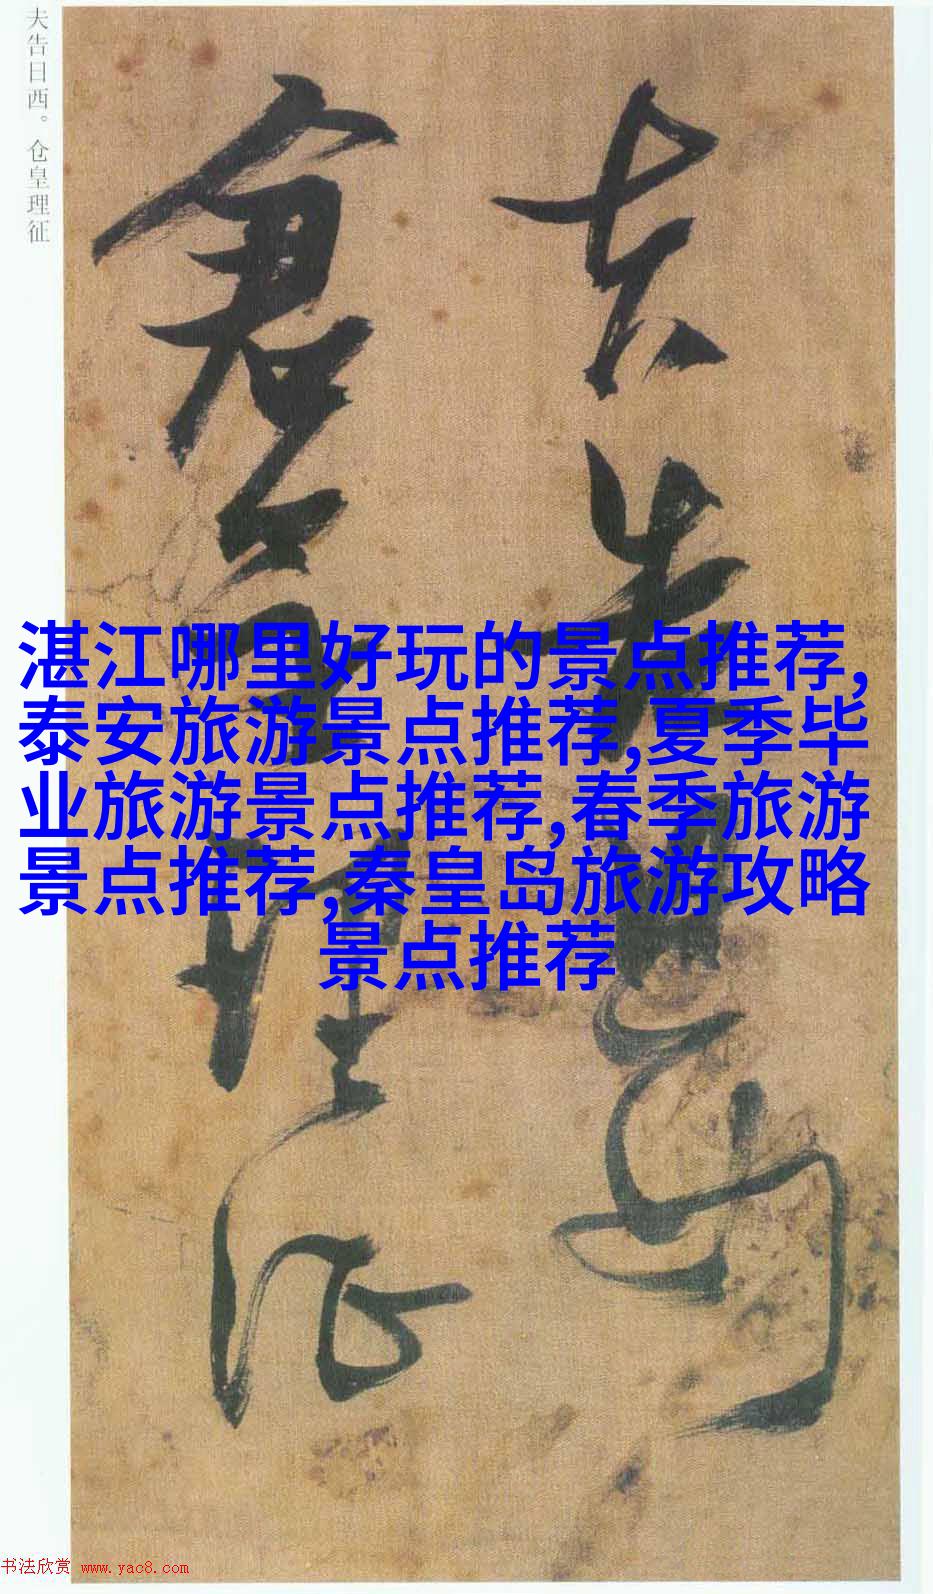 夫告日西。仓皇理征
夫告
仓皇理征
湛江哪里好玩的景点推荐,
泰安旅游景点推荐,夏季毕
业旅游景点推荐,春季旅游
景点推荐,秦皇岛旅游攻略
景点推荐
书法欣赏 www.yac8.com